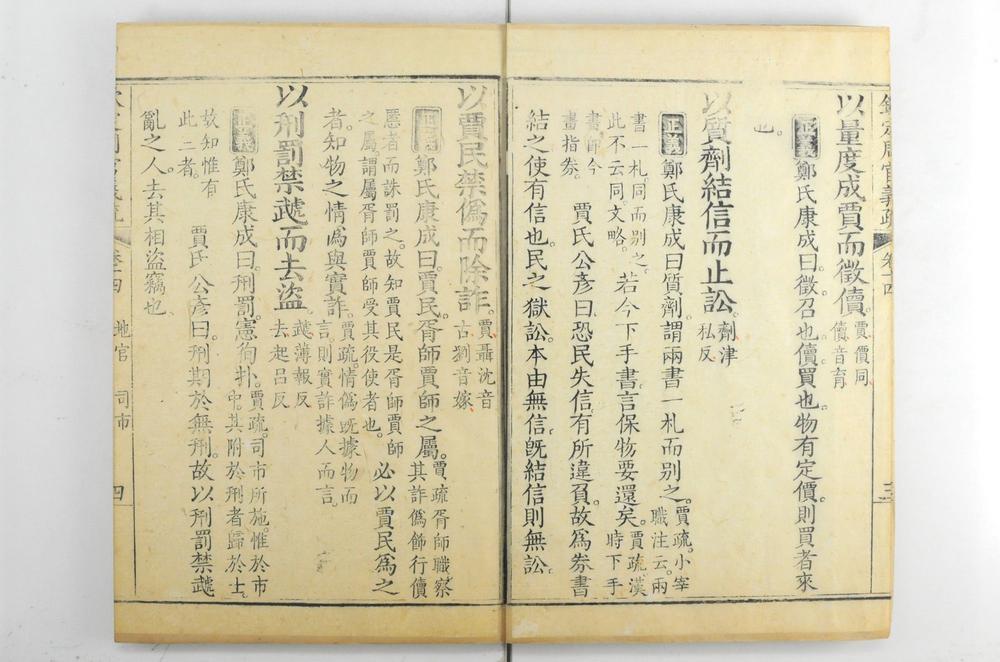 欽定周官義疏 卷十四 三
以量度成賈而徵儥。賈價同
儥音育
正義鄭氏康成曰徵召也儥買也物有定價則買者來
也。
以質劑結信而止訟。劑津
私反
正義鄭氏康成曰質劑謂兩書一札而别之。賈疏。小宰
職注云。兩
書一札同而别之。
此不云同。文略。若今下手書言保物要還矣。賈疏漢
時下手
書即今
畫指券。賈氏公彦曰恐民失信有所違負故為券書
結之使有信也民之獄訟本由無信旣結信則無訟
以賈民禁偽而除詐。賈聶沈音
古劉音嫁
正義鄭氏康成曰賈民胥師賈師之屬。賈疏胥師職察
其詐偽飾行儥
慝者而誅罰之。故知賈民是胥師賈師
之屬謂屬胥師賈師受其役使者也。必以賈民為之
者知物之情偽與實詐。賈疏。情偽旣據物而
言。則實詐據人而言。
以刑罰禁虣而去盜。虣薄報反
去起吕反
正義鄭氏康成曰刑罰。憲徇扑。賈疏。司市所施。惟於市
中。其附於刑者歸於士。
故知惟有
此二者。賈氏公彦曰刑期於無刑。故以刑罰禁虣
亂之人去其相盜竊也
欽定周官義疏 卷十四 地官 司市 四